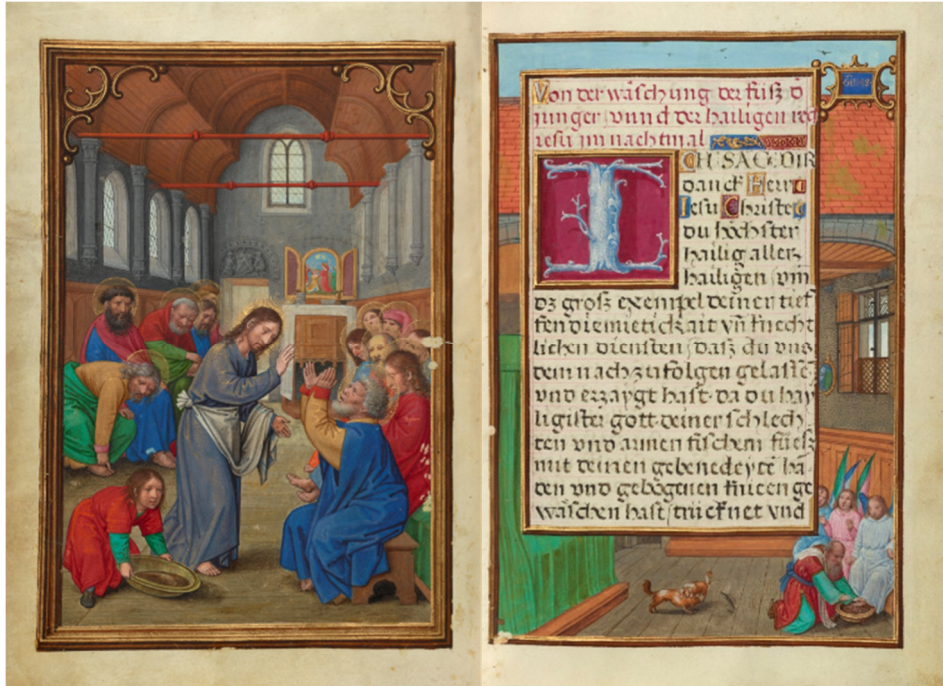 Von der wäschung der füsz d̄
junger vnnd der hailigen red
iesu im nachtmal
ICH SAG DIR
danck Herr
Iesu Christe
du höchster
hailig aller
hailigen, vm̄
dz grosz exempel deiner tief
fen diemietickait vn̄ knecht
lichen diensten, dasz du vns
dem nachzufolgen gelassē
vnd erzaygt hast, da du hay
ligister gott deiner schlech
ten vnd armen fischern füesz
mit deinen gebenedeytē hä
den vnd gebognen knieen ge
wäschen hast, trücknet vnd